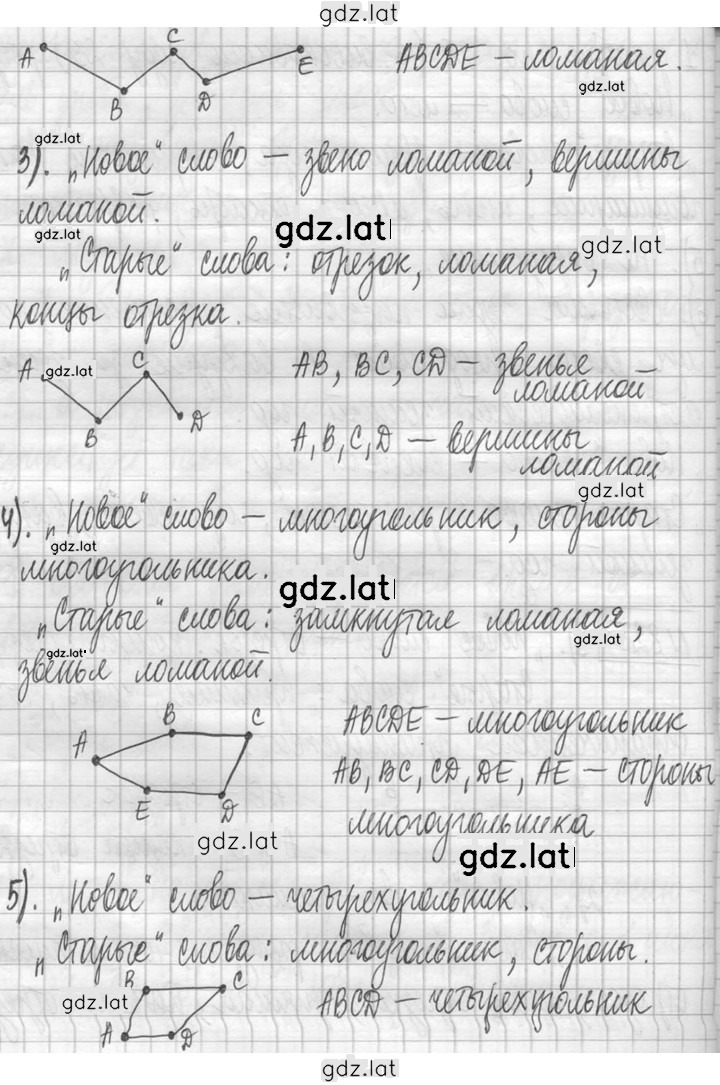 gdz.lat
A B C D E ABCDE – ломаная.
gdz.lat
gdz.lat
3). „Новое“ слово – звено ломаной, вершины
ломаной.
gdz.lat
gdz.lat
gdz.lat
„Старые“ слова: отрезок, ломаная,
концы отрезка.
A B C D
gdz.lat
AB, BC, CD – звенья
ломаной
A, B, C, D – вершины
ломаной
gdz.lat
4). „Новое“ слово – многоугольник, стороны
gdz.lat
многоугольника.
gdz.lat
„Старые“ слова: замкнутая ломаная,
gdz.lat
gdz.lat
звенья ломаной.
A B C D E
ABCDE – многоугольник
AB, BC, CD, DE, AE – стороны
многоугольника
gdz.lat
gdz.lat
5). „Новое“ слово – четырехугольник.
„Старые“ слова: многоугольник, стороны.
A B C D
gdz.lat
ABCD – четырехугольник
gdz.lat